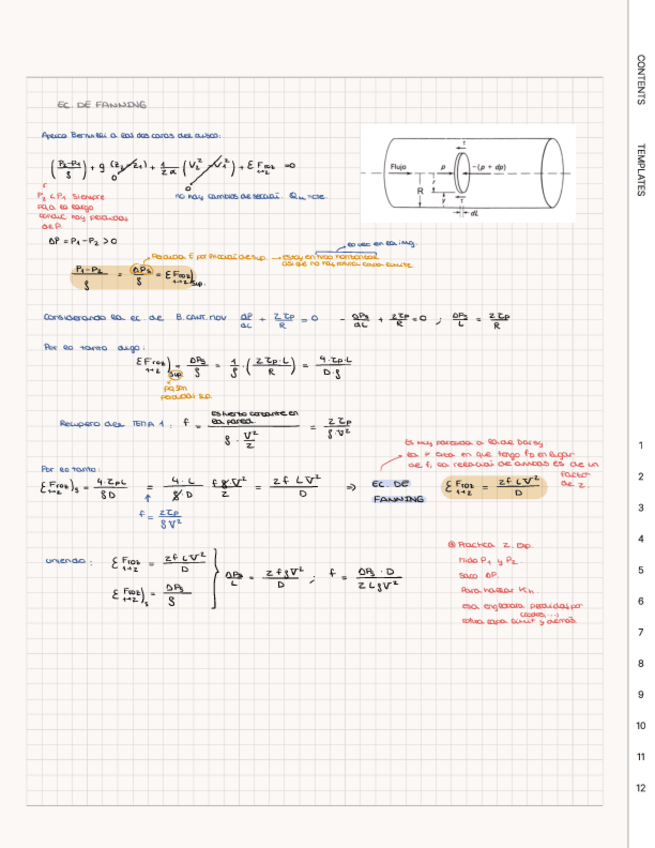 EC. DE FANNING
Aplico Bernoulli a las dos caras del disco:
(P₂-P₁/ρ) + g (z₂-z₁) + 1/2α (V₂² - V₁²) + ΣFroz 1→2 = 0
0
0
P₂ < P₁ siempre
para lo largo
hay pérdidas
de P.
no hay cambios de sección. Qv = cte.
Flujo
R
p
r
y
τ
τ
-(p + dp)
dL
ΔP = P₁ - P₂ > 0
lo veo en la img.
Pérdida F por fricción de sup. → Estoy en tubo horizontal
así que no hay rotura capa límite
P₁-P₂/ρ = ΔPs/ρ = ΣFroz 1→2)sup.
Considerando la ec. de B. cant. mov dP/dL + 2τp/R = 0 - ΔPs/dL + 2τp/R = 0 ; ΔPs/L = 2τp/R
Por lo tanto digo:
ΣFroz 1→2)sup = ΔPs/ρ = 1/ρ · (2τp·L/R) = 4·τp·L/D·ρ
Recupero del TEMA 1: f = Esfuerzo cortante en la pared/ρ · V²/2 = 2τp/ρV²
Es muy parecida a la de Darcy
en que tengo fD en lugar
de f, la relación de ambas es de un
factor
de 2.
Por lo tanto:
ΣFroz 1→2)s = 4·τpL/ρD = 4·L/ρ·D fρV²/2 = 2fLV²/D ⇒ EC. DE FANNING ΣFroz 1→2 = 2fLV²/D
f = 2τp/ρV²
Uniendo: ΣFroz 1→2 = 2fLV²/D
ΣFroz 1→2)s = ΔPs/ρ
ΔPs/L = 2fρV²/D ; f = ΔPs·D/2LρV²
Práctica 2. Exp.
mido P₁ y P₂
saco ΔP.
Para hallar
esa englobara pérdidas por
codos, ...,
rotura capa límite y demás.
CONTENTS
TEMPLATES
1
2
3
4
5
6
7
8
9
10
11
12